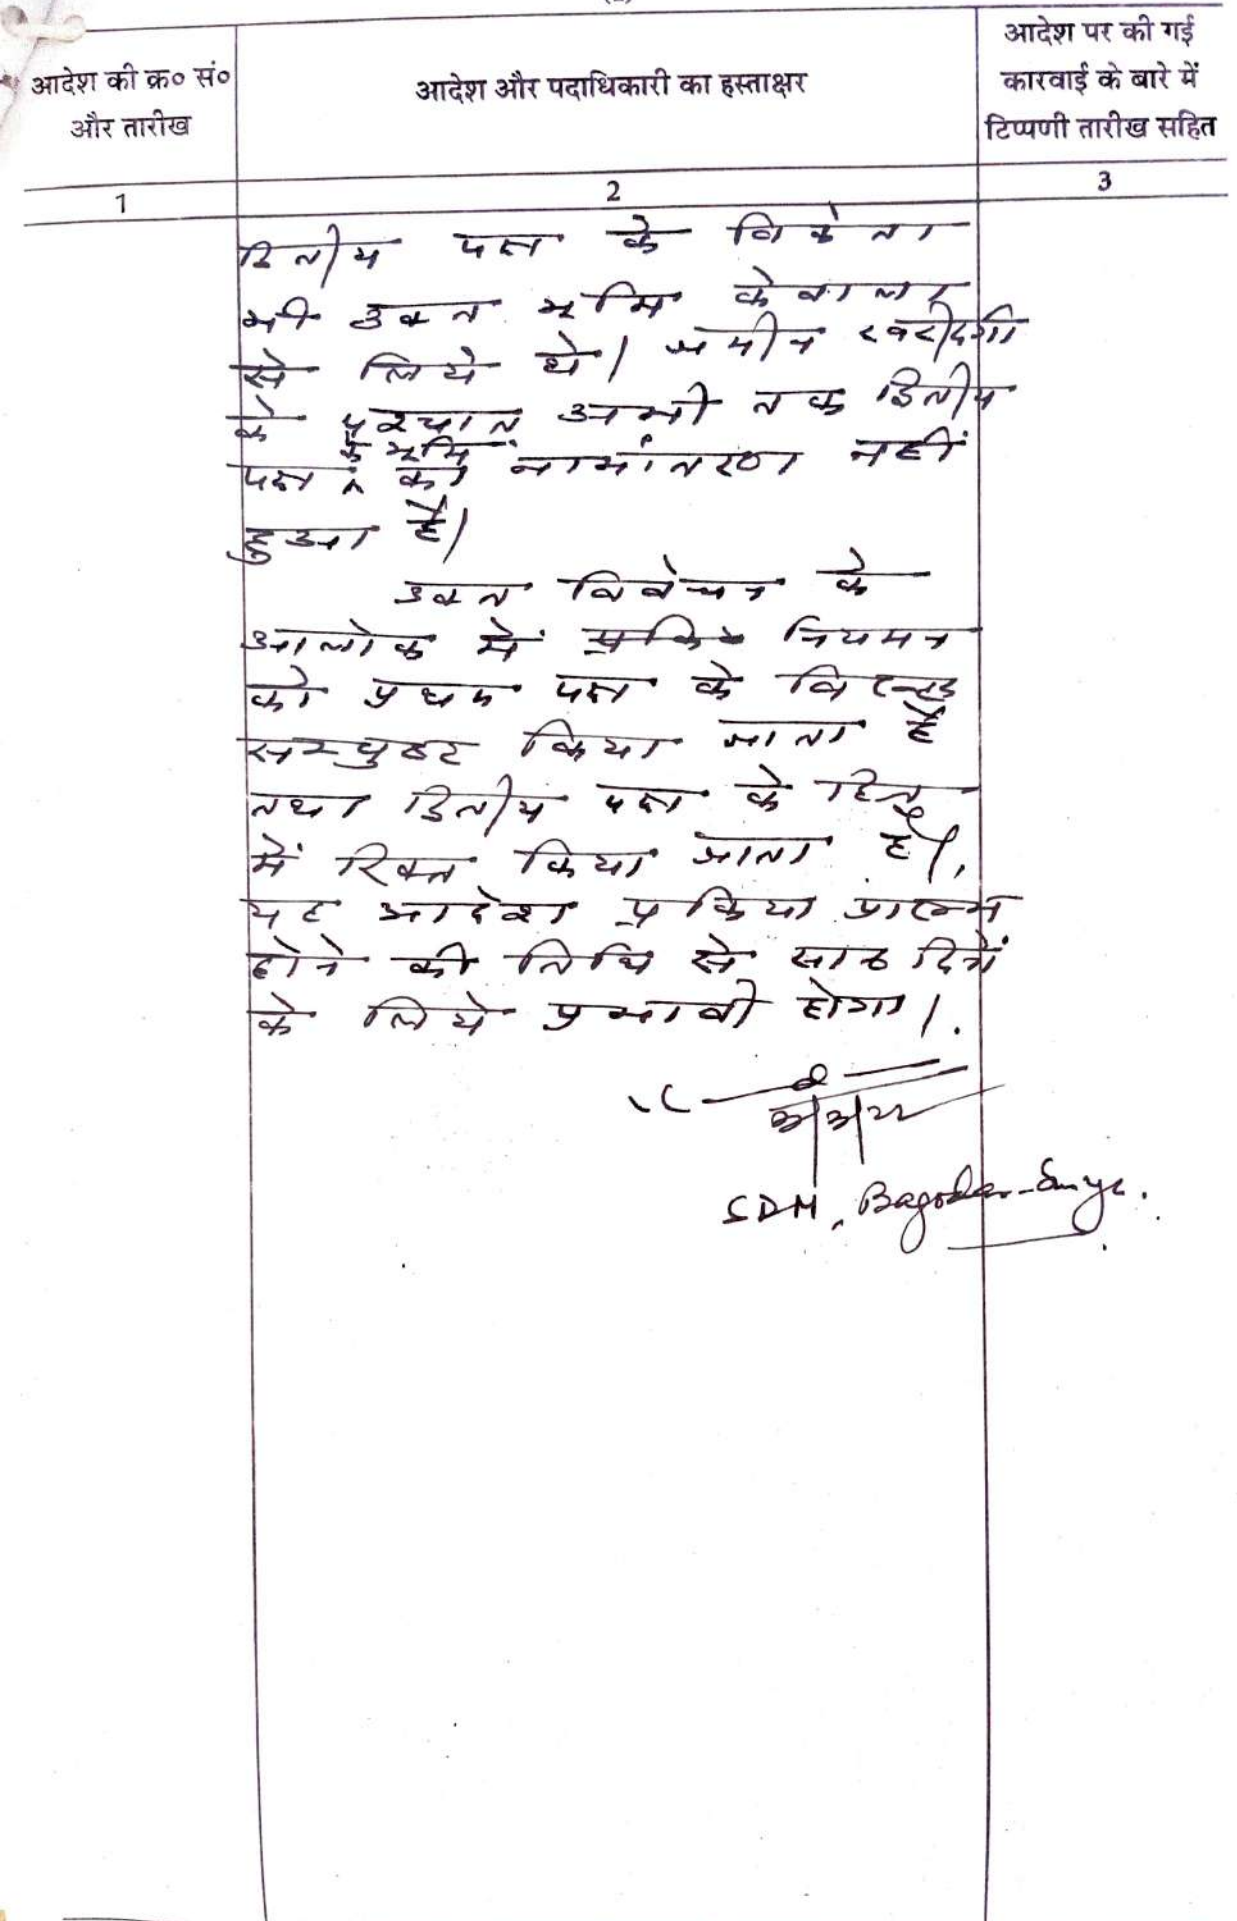 आदेश की क्र० सं०
और तारीख
आदेश और पदाधिकारी का हस्ताक्षर
आदेश पर की गई
कारवाई के बारे में
टिप्पणी तारीख सहित
1
2
3
द्वितीय पक्ष के विक्रेता
भी उक्त भूमि केवाला
से लिये थे। जमीन खरीदगी
के पश्चात अभी तक द्वितीय
पक्ष के भूमि का नामांतरण नहीं
हुआ है।
उक्त विवेचन के
आलोक में नियमन
को प्रथम पक्ष के विरुद्ध
सम्पुष्ट किया जाता है
तथा द्वितीय पक्ष के हित
में रिक्त किया जाता है।
यह आदेश प्रक्रिया प्रारम्भ
होने की तिथि से साठ दिनों
के लिये प्रभावी होगा।
SDM, Bagodar-